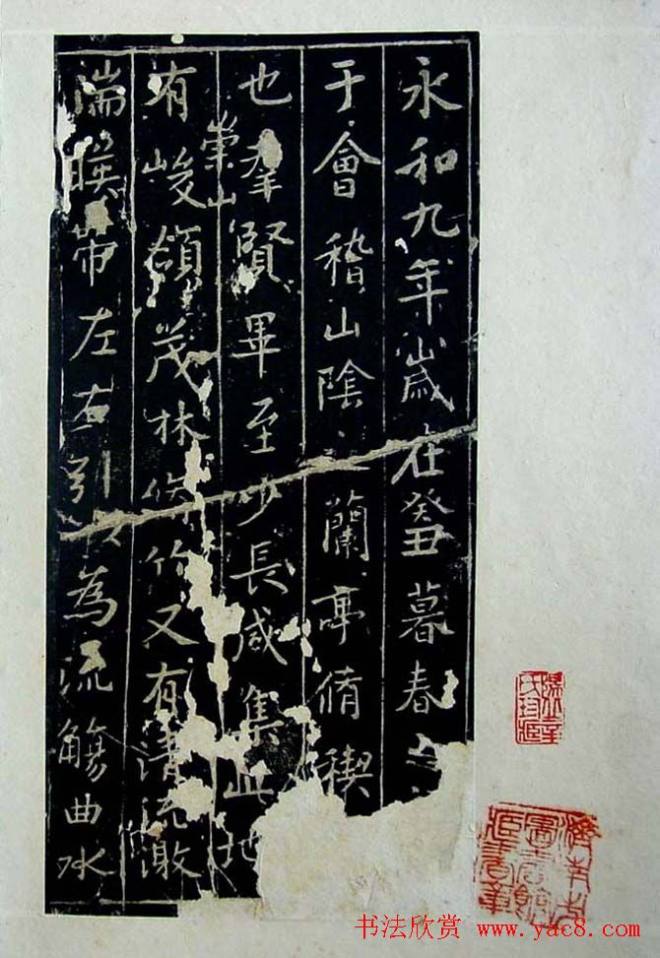 永和九年歲在癸丑暮春之
于會稽山陰之蘭亭脩稧
也羣賢畢至少長咸集此地
有崇山峻領茂林脩竹又有清流激
湍暎帶左右引以為流觴曲水
濟南市圖書館
书法欣赏 www.yac8.com